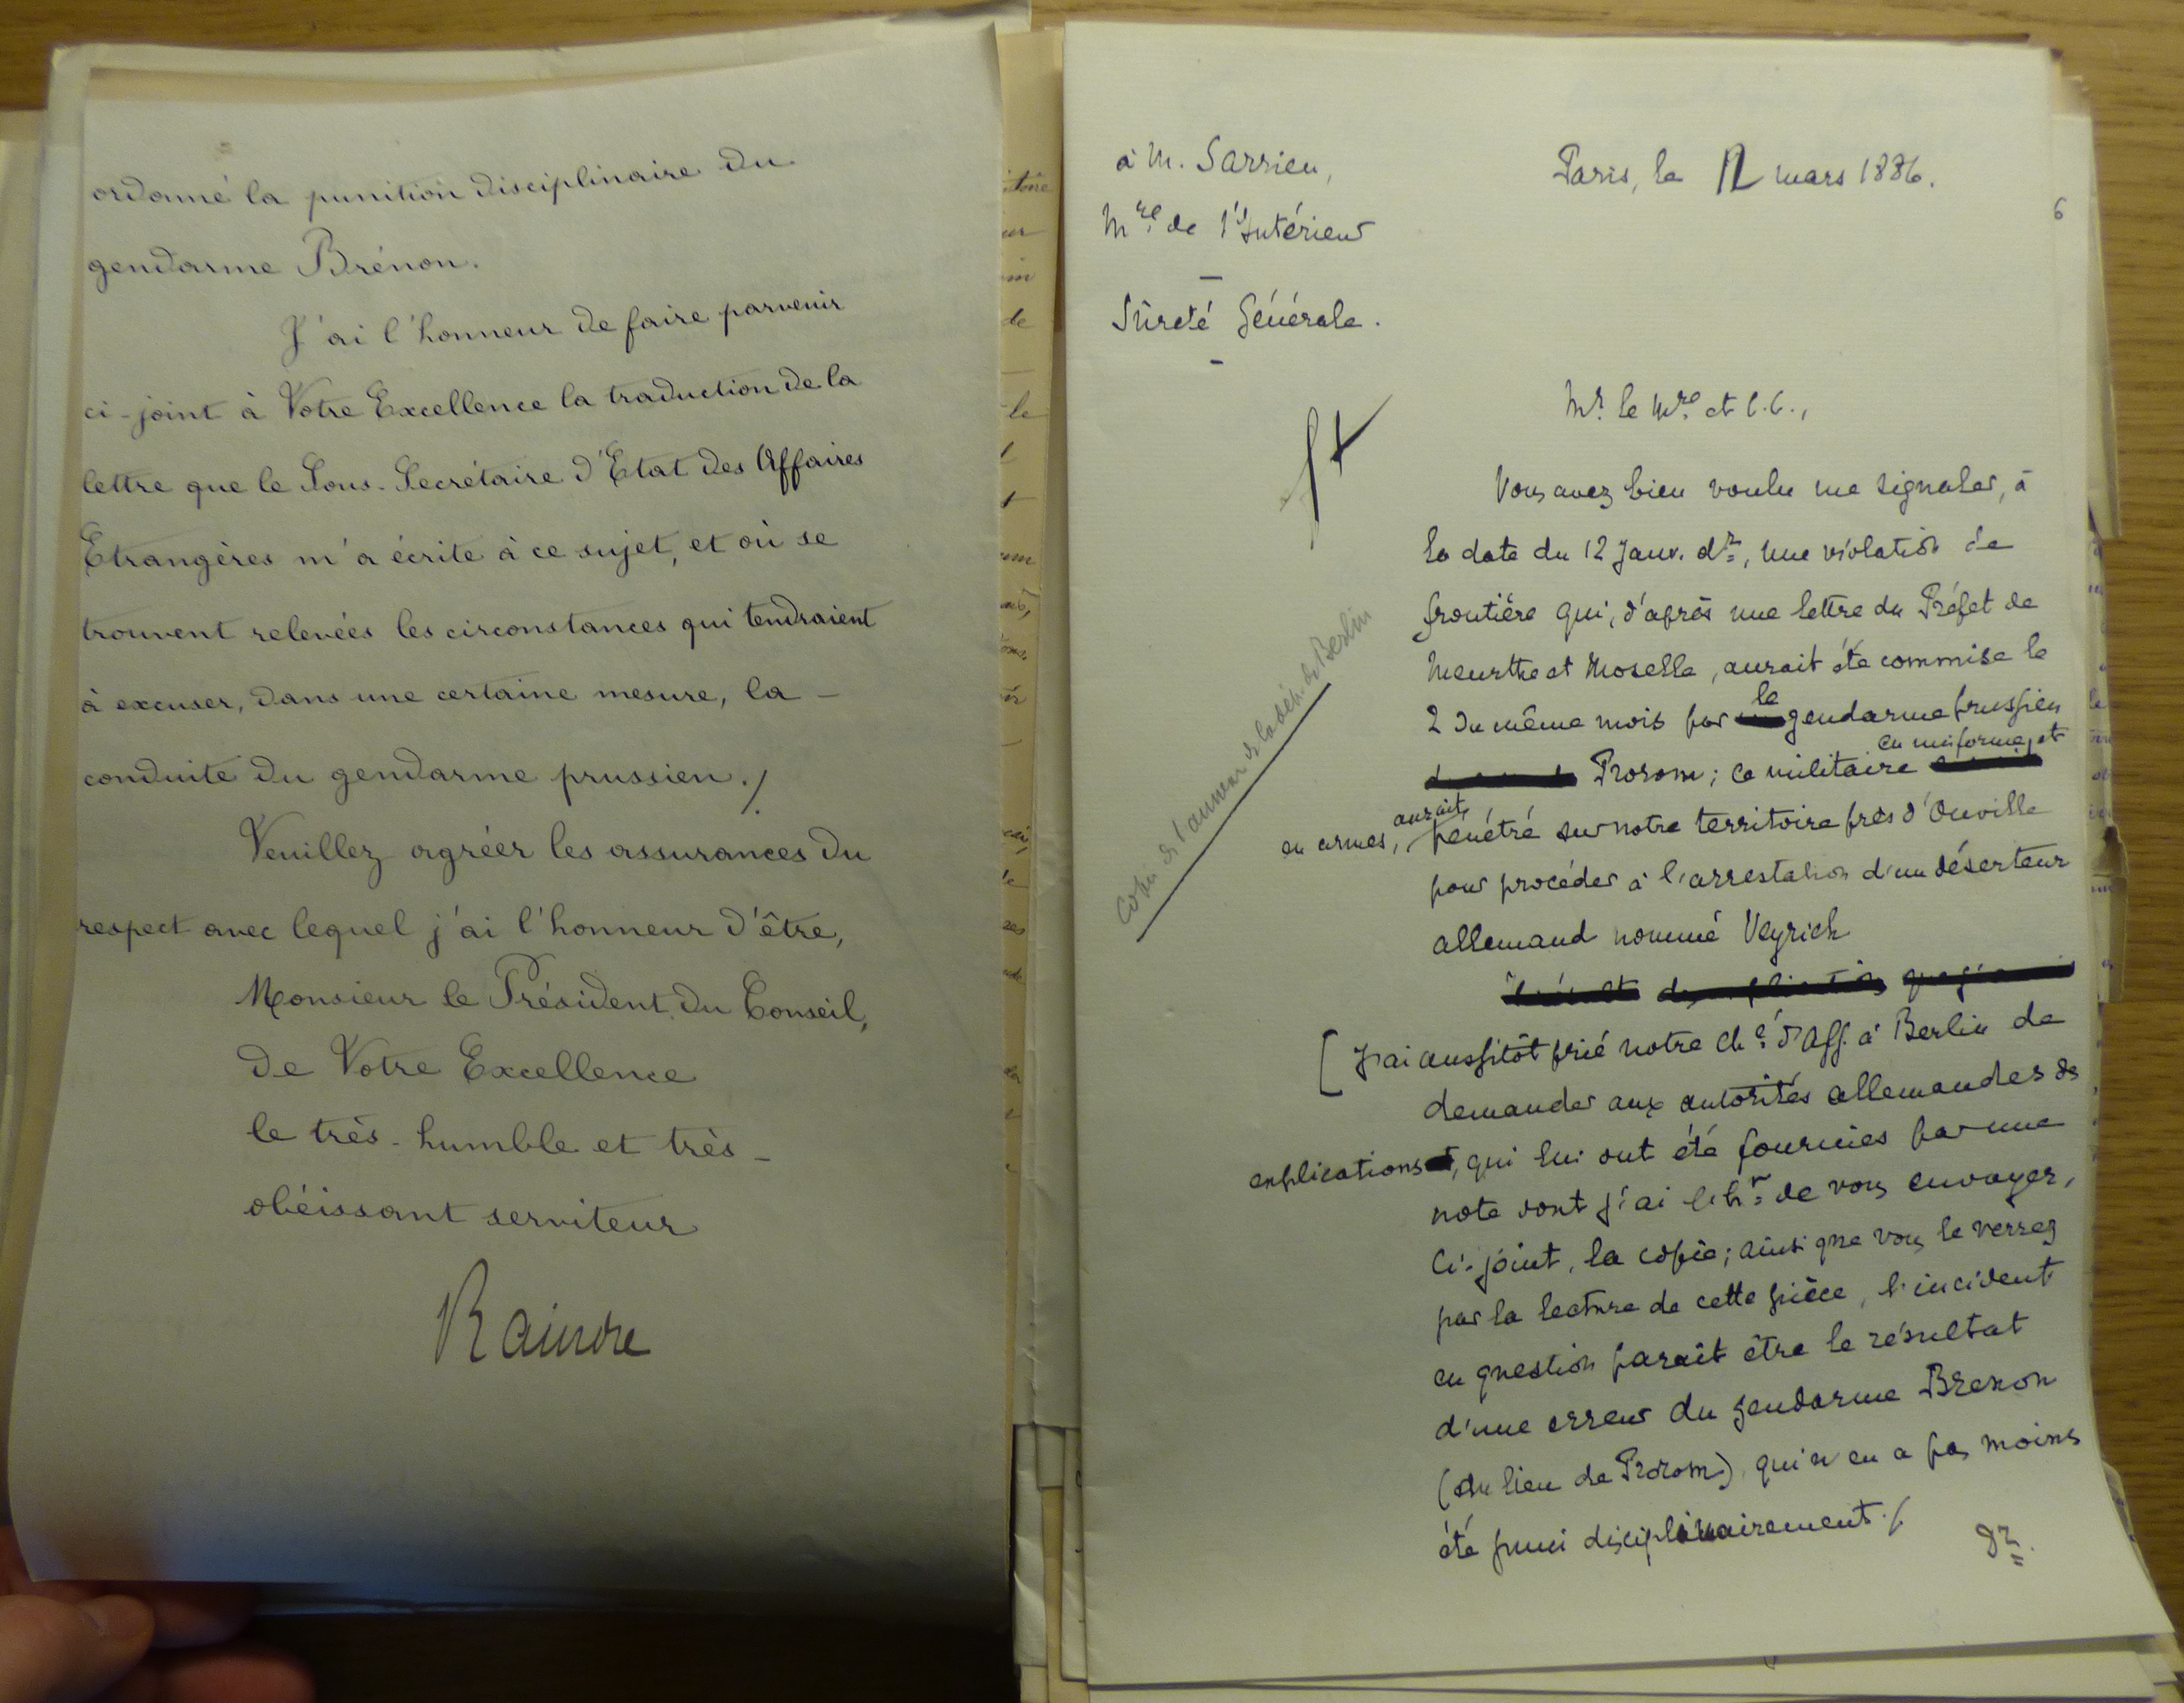 ordonné la punition disciplinaire du
gendarme Brénon.
J'ai l'honneur de faire parvenir
ci-joint à Votre Excellence la traduction de la
lettre que le Sous-Secrétaire d'Etat des Affaires
Etrangères m'a écrite à ce sujet, et où se
trouvent relevées les circonstances qui tendraient
à excuser, dans une certaine mesure, la -
conduite du gendarme prussien./
Veuillez agréer les assurances du
respect avec lequel j'ai l'honneur d'être,
Monsieur le Président du Conseil,
de Votre Excellence
le très-humble et très-
obéissant serviteur
Raindre
à M. Sarrien,
Mre de l'Intérieur
-
Sûreté Générale.
-
Paris, le 12 mars 1886.
6
Mr. le Mre et C.C.,
Vous avez bien voulu me signaler, à
la date du 12 Janv. dr, une violation de
frontière qui, d'après une lettre du Préfet de
Meurthe et Moselle, aurait été commise le
2 du même mois par le gendarme prussien
Prorom; ce militaire en uniforme et
en armes, aurait pénétré sur notre territoire près d'Onville
pour procéder à l'arrestation d'un déserteur
allemand nommé Veyrich
[J'ai aussitôt prié notre Ché d'Aff. à Berlin de
demander aux autorités allemandes des
explications, qui lui ont été fournies par une
note dont j'ai l'hr de vous envoyer,
ci-joint, la copie; ainsi que vous le verrez
par la lecture de cette pièce, l'incident
en question paraît être le résultat
d'une erreur du gendarme Brenon
(au lieu de Prorom), qui n'en a pas moins
été puni disciplinairement./
Copie de l'annexe de la dép. de Berlin